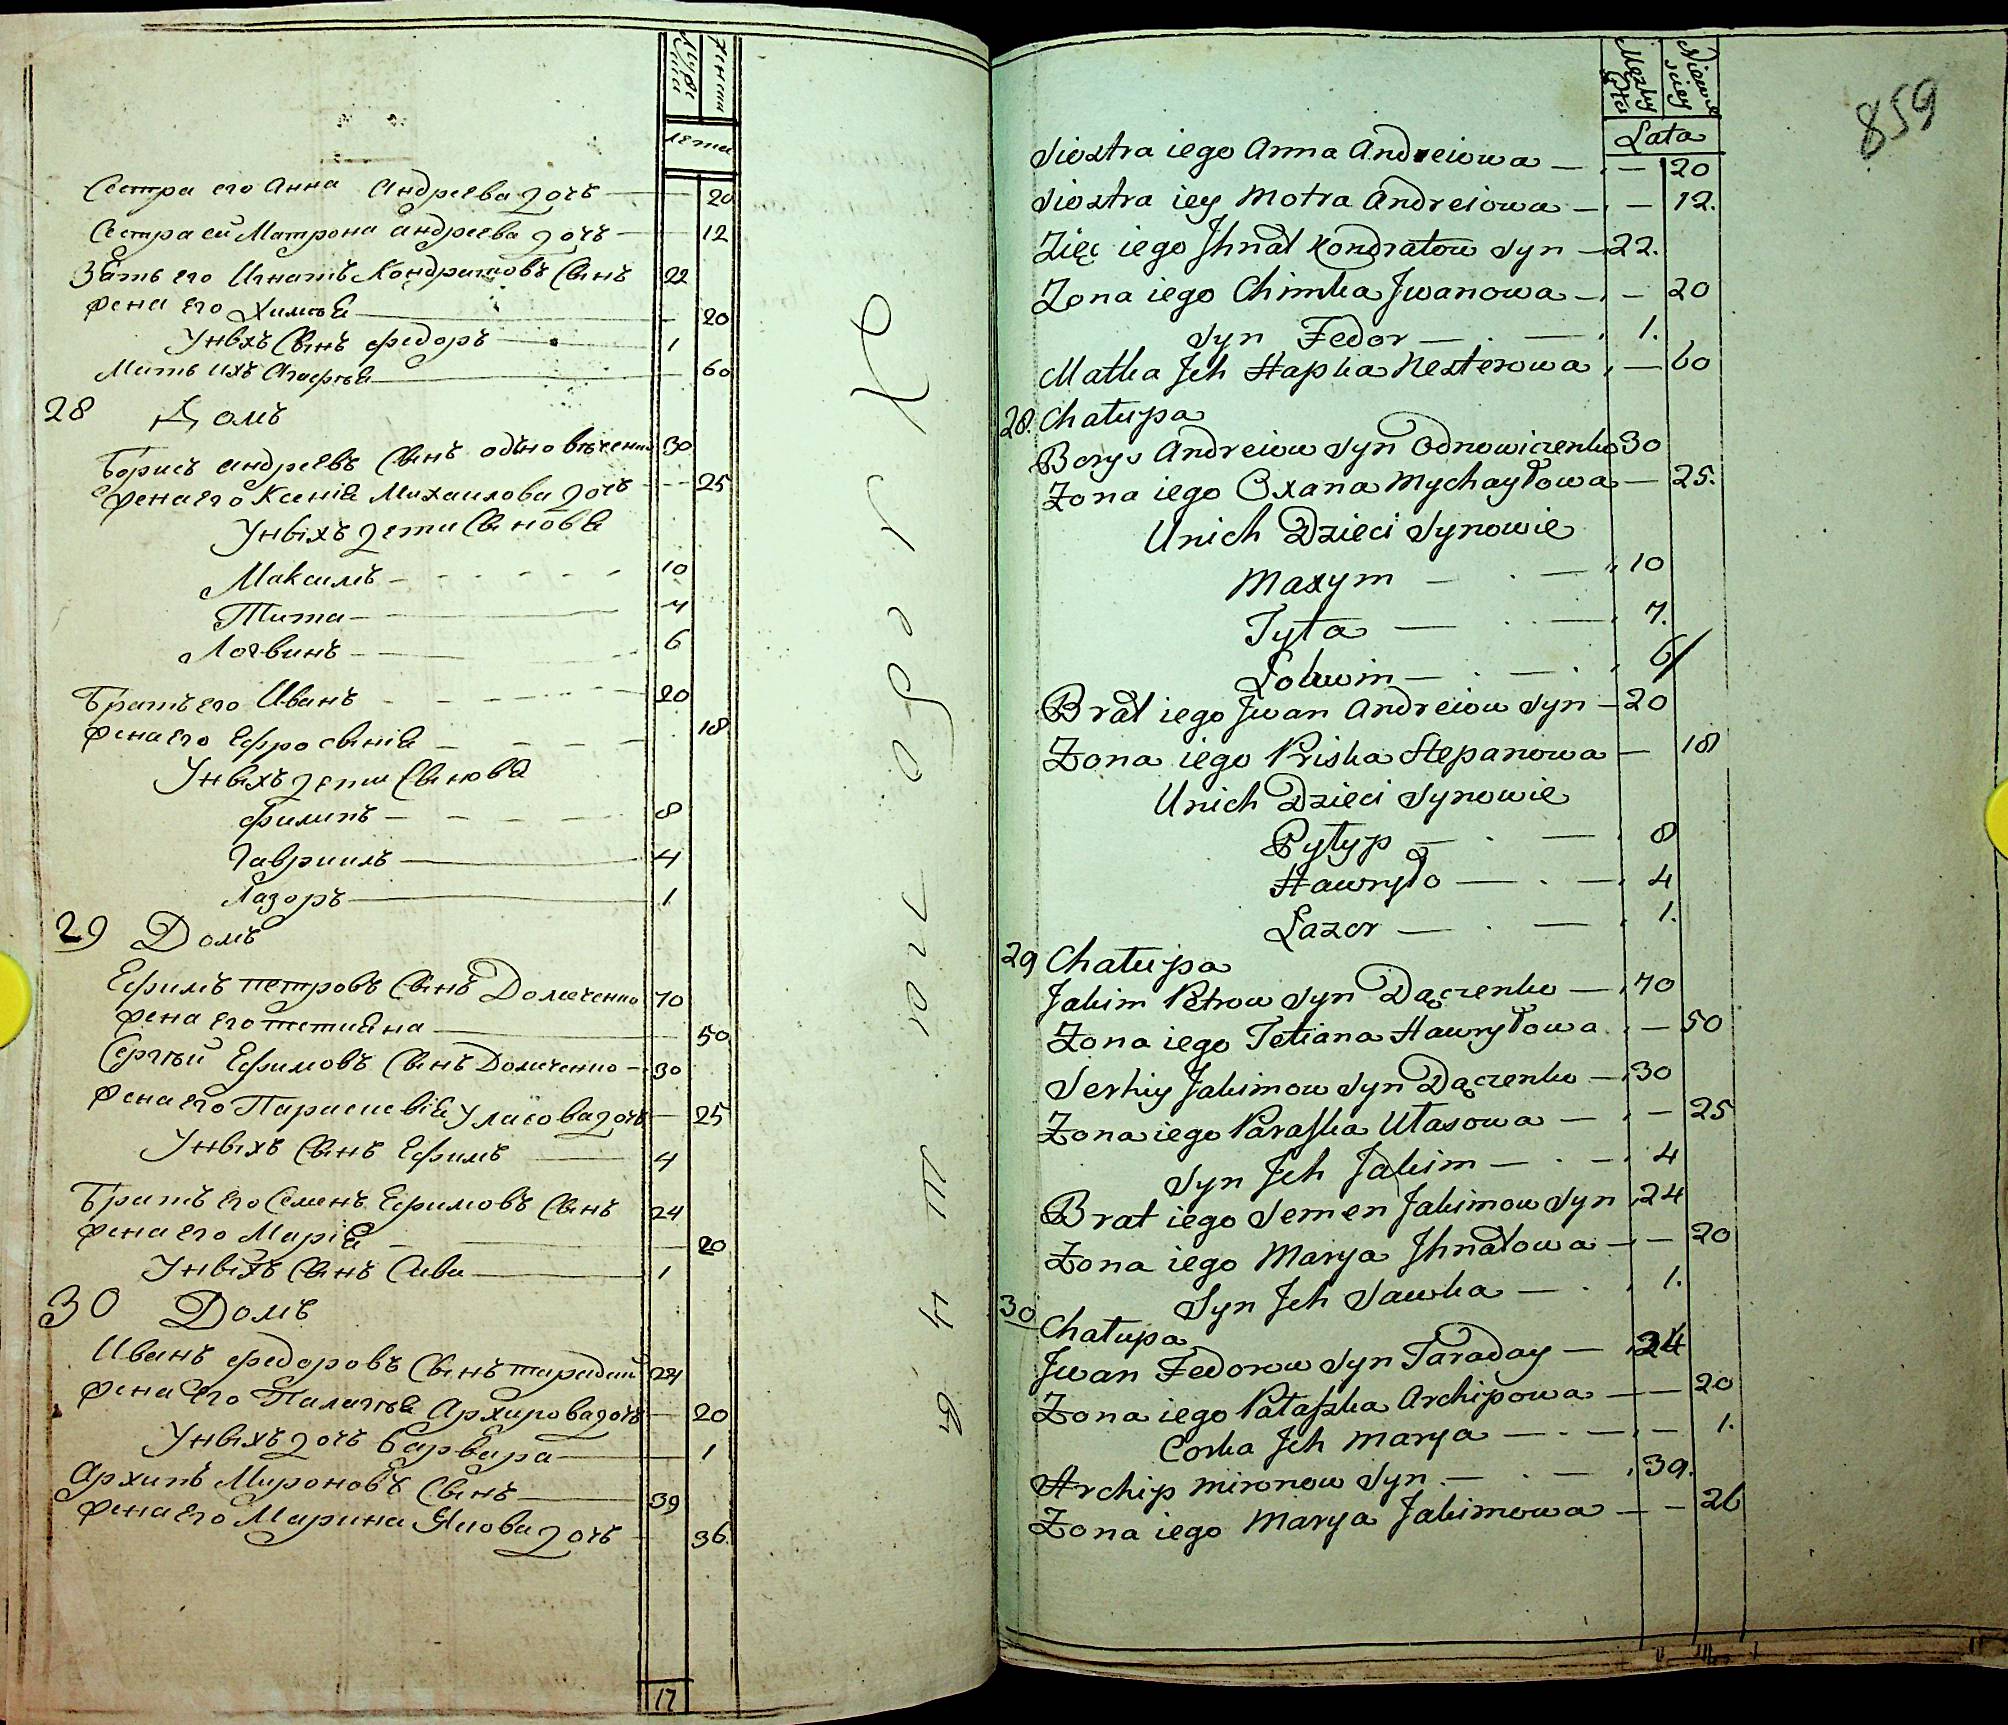 Мужеска
Женски
лета
Сестра его Анна Андреева дочъ — 20
Сестра ей Матрона андреева дочъ — 12
Зять его Игнатъ Кондратовъ Сынъ 22
жена его Химка — 20
У ныхъ Сынъ федоръ — 1
Мать ихъ Агафия — 60
28 Домъ
Борисъ андреевъ Сынъ 30
жена его Ксения Михаилова дочъ — 25
У ныхъ дети Сынове
Максимъ — 10
Тита — 7
Логвинъ — 6
Братъ его Иванъ — 20
жена его Ефросиния — 18
У ныхъ дети Сынове
филипъ — 8
Гавриилъ — 4
Лазоръ — 1
29 Домъ
Ефимъ петровъ Сынъ 70
жена его тетияна — 50
Сергѣй Ефимовъ Сынъ — 30
жена его Параскевия Уласова дочъ — 25
У ныхъ Сынъ Ефимъ — 4
Братъ его Семенъ Ефимовъ Сынъ 24
жена его Мария — 20
У ныхъ Сынъ Сава — 1
30 Домъ
Иванъ федоровъ Сынъ тарадай 24
жена его Палагия Архипова дочъ — 20
У ныхъ дочъ Варвара — 1
Архипъ Мироновъ Сынъ — 39
жена его Марина дочъ — 36
17
859
Lata
Siostra iego Anna Andreiowa — 20
Siostra iey Motra Andreiowa — 12.
Zięć iego Jhnat Kondratow Syn — 22.
Zona iego Chimka Jwanowa — 20
Syn Fedor — 1.
Matka Jch Hapka Nesterowa — 60
28. Chałupa
Borys Andreiow Syn Odnowiczenko 30
Zona iego Oxana Mychayłowa — 25.
Unich Dzieci Synowie
Maxym — 10
Tyta — 7.
Lohwin — 6
Brat iego Jwan Andreiow Syn — 20
Zona iego Priska Stepanowa — 18
Unich Dzieci Synowie
Pyłyp — 8
Hawryło — 4
Lazor — 1.
29 Chałupa
Jakim Petrow Syn Dączenko — 70
Zona iego Tetiana Hawryłowa — 50
Serhiy Jakimow Syn Dączenko — 30
Zona iego Paraska Ułasowa — 25
Syn Jch Jakim — 4
Brat iego Semen Jakimow Syn 24
Zona iego Marya Jhnatowa — 20
Syn Jch Sawka — 1.
30 Chałupa
Jwan Fedorow Syn Taraday — 24
Zona iego Pałaszka Archipowa — 20
Corka Jch Marya — 1.
Archip Mironow Syn — 39.
Zona iego Marya Jakimowa — 26